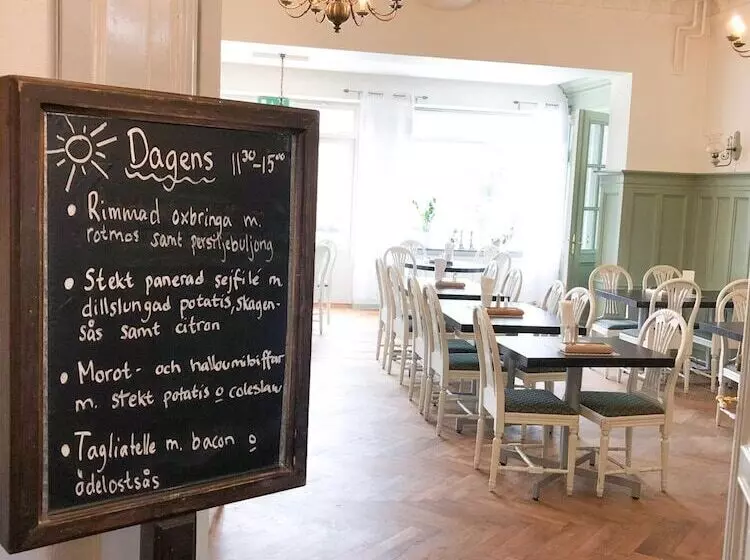 Dagens 11³⁰-15⁰⁰
• Rimmad oxbringa m.
rotmos samt persiljebuljong
• Stekt panerad sejfilé m
dillslungad potatis, skagen-
sås samt citron
• Morot- och halloumibiffar
m. stekt potatis o coleslaw
• Tagliatelle m. bacon o
ädelostsås